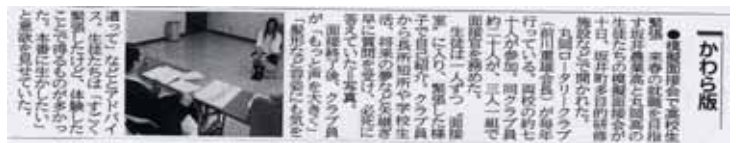 かわら版
●模擬面接会で高校生
緊張 来春の就職を目指
す坂井農業高と丸岡高の
生徒たちの模擬面接会が
十日、坂井町多目的研修
施設などで開かれた。
丸岡ロータリークラブ
(前川 会長)が毎年
行っている。両校の約七
十人が参加。同クラブ員
約二十人が、三人一組で
面接官を務めた。
生徒は一人ずつ「面接
室」に入り、緊張した様
子で自己紹介。クラブ員
から長所短所や学校生
活、将来の夢などを矢継ぎ
早に質問を受け、必死に
答えていた＝写真。
面接終了後、クラブ員
が「もっと声を大きく」
「髪形など容姿にも気を
遣って」などとアドバイ
ス。生徒たちは「すごく
緊張したけど、体験した
ことで得るものが多かっ
た。本番に生かしたい」
と意欲を見せていた。